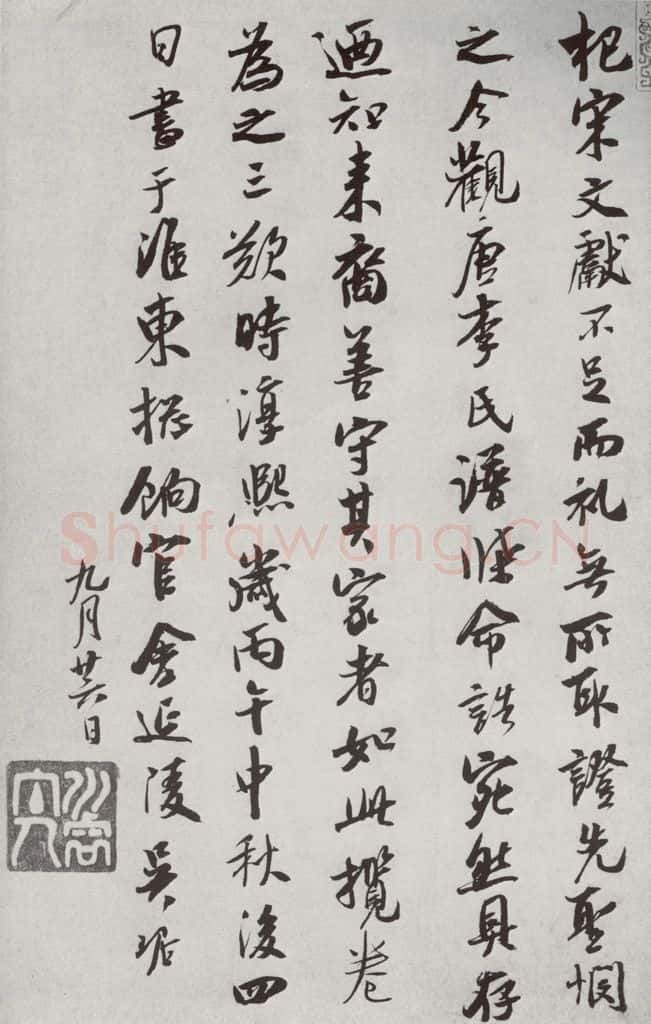 杞宋文獻不足而礼無所取證先聖憫
之今觀唐李氏譜牒命誥宛然具存
迺知來裔善守其家者如此攬卷
為之三歎時淳熙歲丙午中秋後四
日書于淮東總餉官舍延陵吳琚
九月廿六日
Shufawang.CN